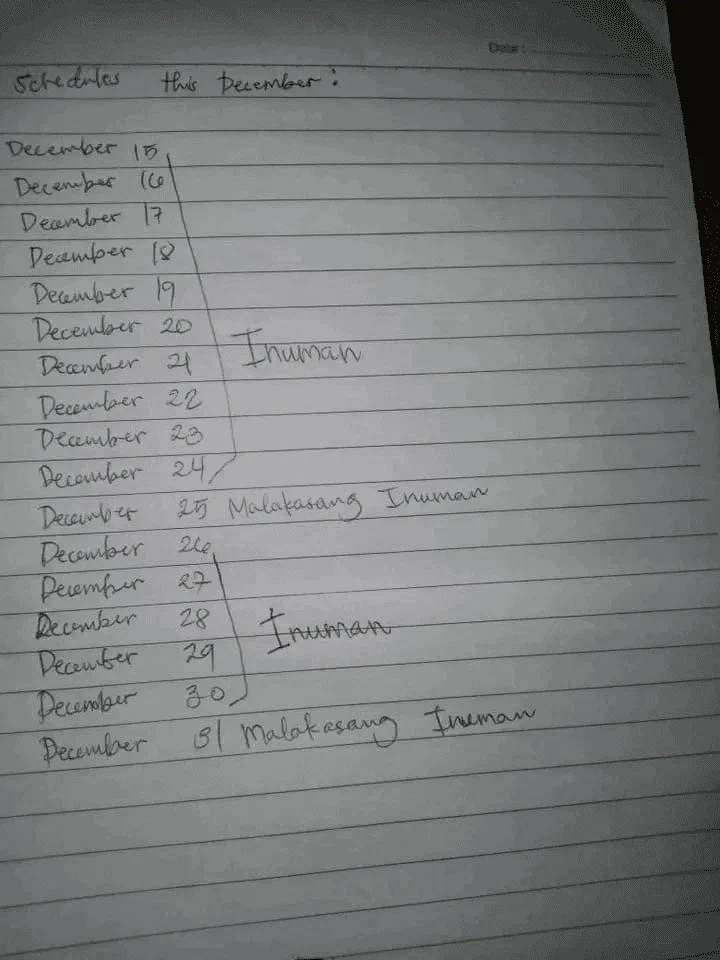 Date:
Schedules this December:
December 15
December 16
December 17
December 18
December 19
December 20
Inuman
December 21
December 22
December 23
December 24
December 25 Malakasang Inuman
December 26
December 27
December 28
Inuman
December 29
December 30
December 31 Malakasang Inuman